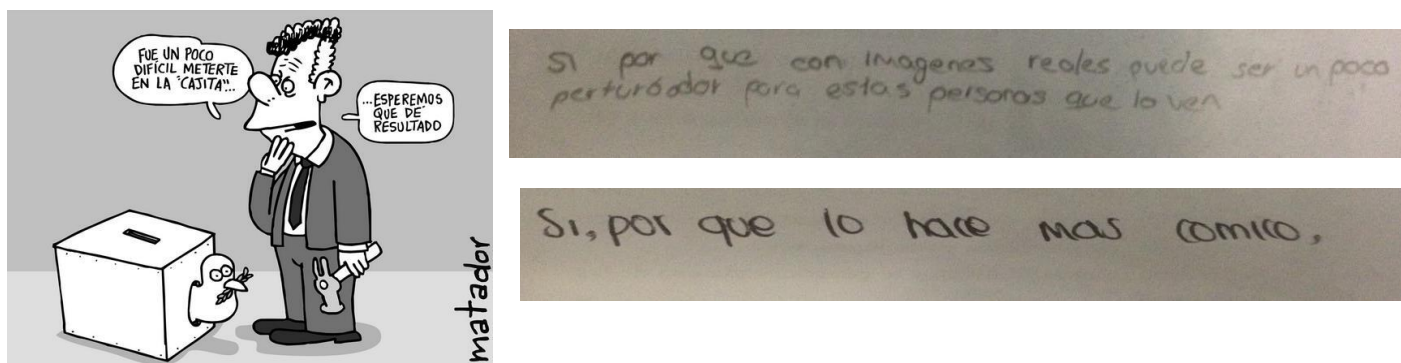 FUE UN POCO
DIFÍCIL METERTE
EN LA "CAJITA"...
...ESPEREMOS
QUE DE
RESULTADO
matador
SI por que con imagenes reales puede ser un poco
perturbador para estas personas que lo ven
Si, por que lo hace mas comico.